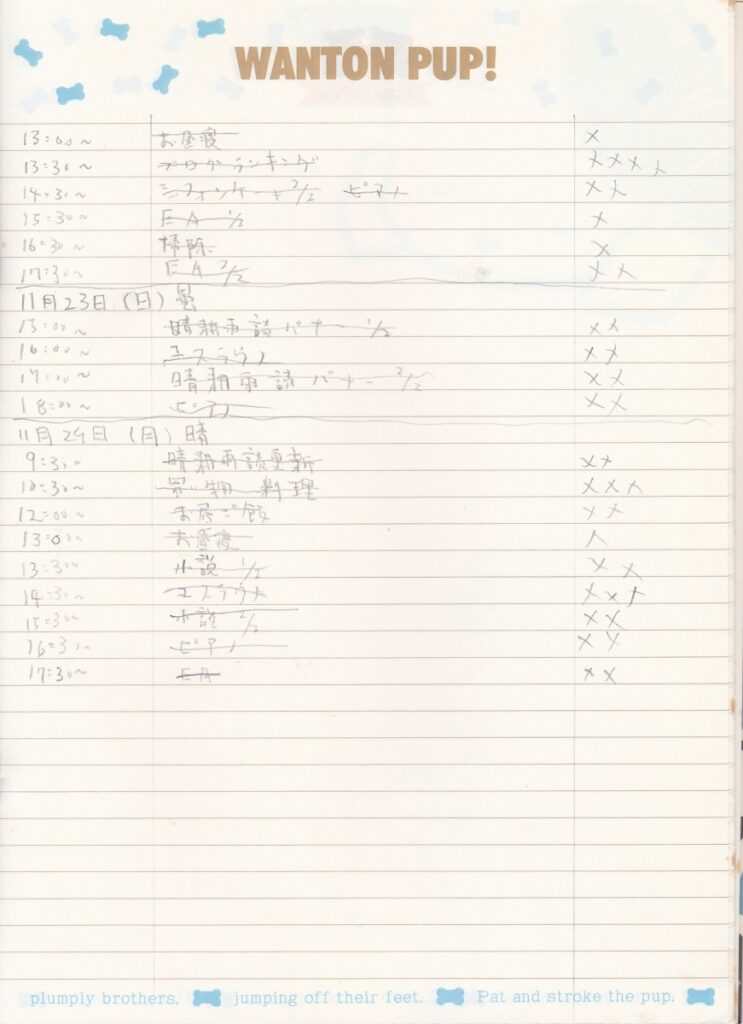 WANTON PUP!
13:00~ お昼寝 ×
13:30~ ブログランキング ××××
14:30~ シフォンケーキ 2/2 ピアノ ××
15:30~ EA 1/2 ×
16:30~ 掃除 ×
17:30~ EA 2/2 ××
11月23日(日)曇
15:00~ 晴耕雨読バナー 1/2 ××
16:00~ エスラウノ ××
17:00~ 晴耕雨読バナー 2/2 ××
18:00~ ピアノ ××
11月24日(月)晴
9:30~ 晴耕雨読更新 ××
10:30~ 買い物 料理 ×××
12:00~ お昼ご飯 ××
13:00~ お昼寝
13:30~ 小説 1/2 ××
14:30~ ×××
15:30~ 小説 2/2 ××
16:30~ ピアノ ××
17:30~ EA ××
plumply brothers, jumping off their feet. Pat and stroke the pup.